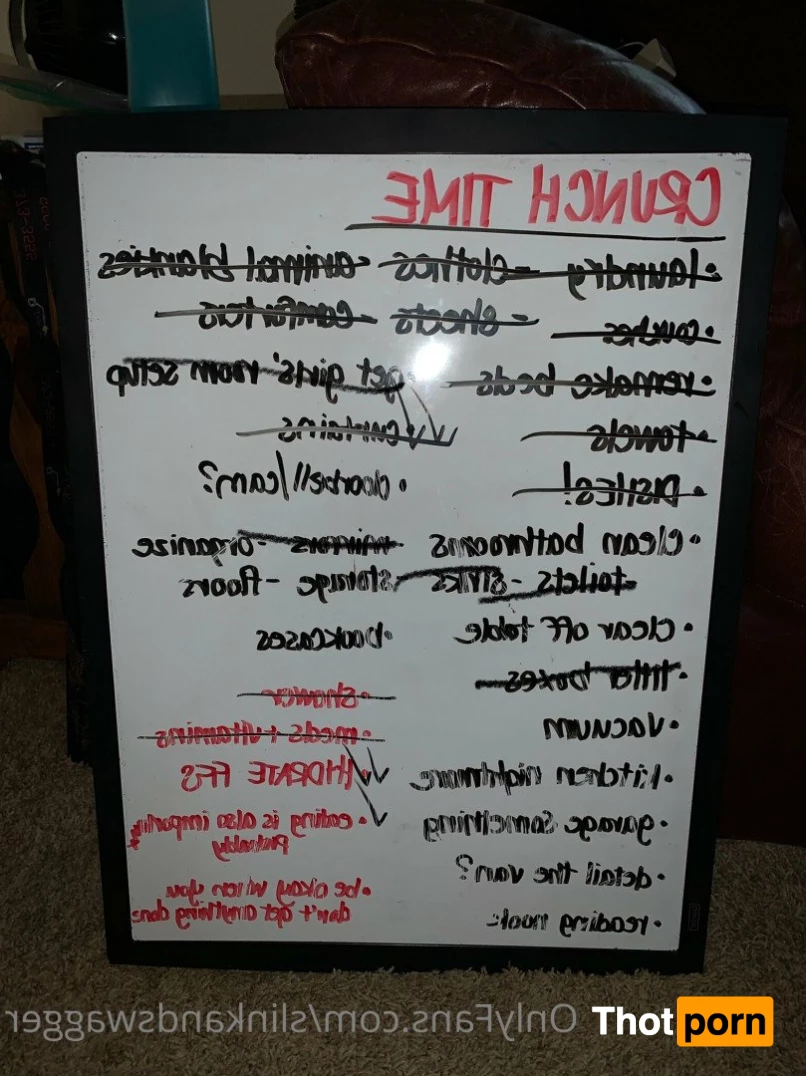 CRUNCH TIME
• laundry - clothes - animal blankies
• couches - sheets - comforters
• remake beds • get girls' room setup
• towels • curtains
• DISHES! • doorbell/cam?
• clean bathrooms - mirrors - organize
- toilets - sinks - storage - floors
• clear off table • bookcases
• litter boxes • shower
• vacuum • meds + vitamins
• kitchen nightmare • HYDRATE FFS
• garage something • eating is also important
probably
• detail the van? • be okay when you
• reading nook don't get anything done
373-8555
OnlyFans.com/slinkandswagger
Thot porn